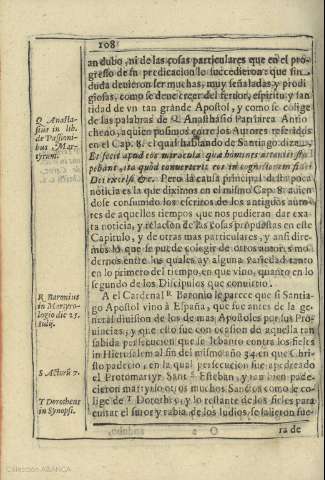 108
an dubo, ni de las cosas particulares que en el pro-
gresso de su predicacion le succedieron: que sin
duda devieron ser muchas, muy señaladas y prodi-
giosas, como se deve creer del fervor, espiritu y san-
tidad de un tan grande Apostol, y como se colige
de las palabras de Q Anasthasio Patriarca Antio
cheno, a quien pusimos entre los Autores referidos
en el Cap. 8. el qual hablando de Santiago dize,
Et fecit apud eos miracula quæ homines
Dei excelsi &c. Pero la causa principal desta poca
noticia es la que diximos en el mismo Cap. 8: avien
dose consumido los escritos de los antiguos auto-
res de aquellos tiempos que nos pudieran dar exa
ta noticia, y relacion de las cosas propuestas en este
Capitulo, y de otras mas particulares, y ansi dire-
mos lo que se puede colegir de otros autores mo
dernos entre los quales ay alguna variedad tanto
en lo primero del tiempo en que vino, quanto en lo
segundo de los Discipulos que convirtio.
A el Cardenal R Baronio le parece que si Santia-
go Apostol vino a España, que fue antes de la ge-
neral division de los demas Apostoles por las Pro
uincias, y que esto fue con ocasion de aquella tan
sabida persecucion que se levanto contra los fieles
en Hierusalem al fin del mismo año 34. en que Chri-
sto padecio, en la qual persecucion fue apedreado
el Protomartyr Sant S Esteban, y tambien pade-
cieron martyrio otros muchos Sanctos como se co
lige de T Dorotheo, y lo restante de los fieles para
evitar el furor y rabia de los Iudios, se salieron fue-
ra de
Q Anasta-
sius in lib.
de Passioni-
bus Mar-
tyrum.
R Baronius
in Martyro-
logio die 25.
Iulij.
S Actorū 7.
T Dorotheus
in Synopsi.
Colección ABANCA